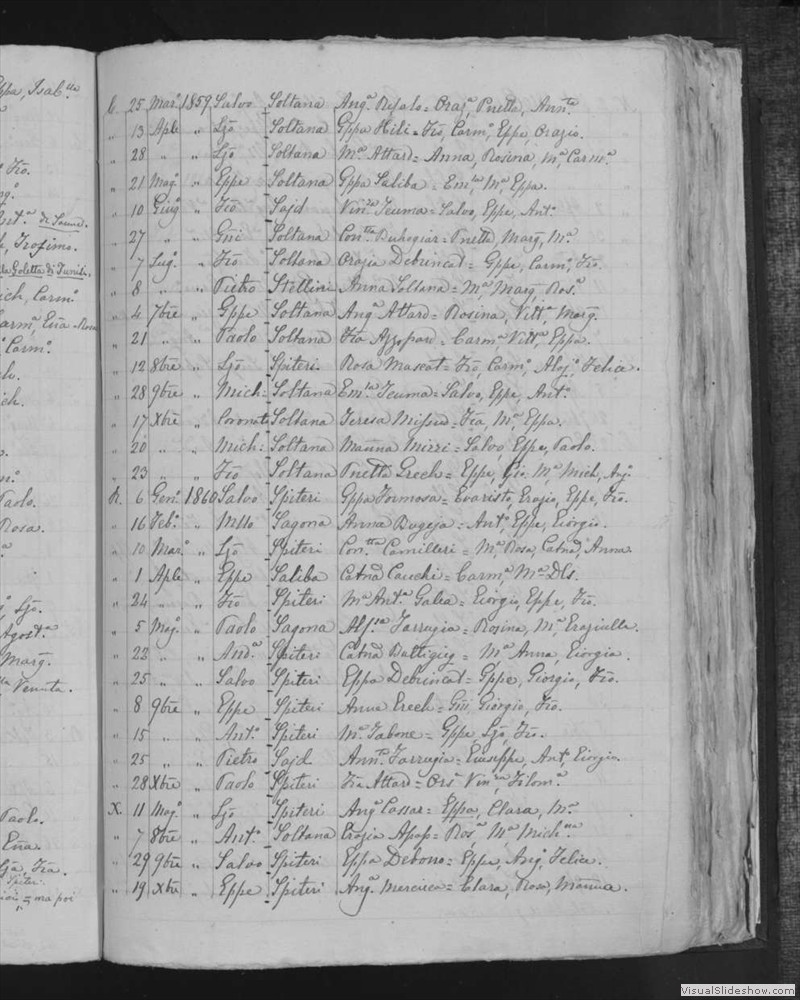 ppa, Isab.lla
Fro.
Ant.a
h, Trofimo.
la Goletta di Tunisi.
ich, Carm.o
arm.a, Eña
Carm.o
ch.
ich.
Paolo.
Rosa.
Ljo.
Agost.a
Marg.
Venuta.
Paolo.
Eña.
Lja, Fra.
Spiteri
= ma poi
b 25 Mar.o 1859 Salvo Soltana Ang.a Refalo = Oraj.a, Pnetta, Ann.ta
„ 13 Aple „ Ljo Soltana Gppa Hili = Fro, Carm.o, Eppe, Orazio.
„ 28 „ „ Ljo Soltana M.a Attard = Anna, Rosina, M.a Carm.a
„ 21 Mag.o „ Eppe Soltana Gppa Saliba = Em.la, M.a Eppa.
„ 10 Giug.o „ Fro Sajd Vin.za Teuma = Salvo, Eppe, Ant.o
„ 27 „ „ Gni Soltana Con.tta Buhagiar = Pnetta, Marg, M.a
„ 7 Lug.o „ Fro Soltana Orazia Debrincat = Gppe, Carm.o, Fro.
„ 8 „ „ Pietro Stellini Anna Soltana = M.a, Marg, Ros.a
„ 4 7bre „ Gppe Soltana Ang.a Attard = Rosina, Vitt.a, Marg.
„ 21 „ „ Paolo Soltana Fra Azzopard = Carm.a Vitt.a, Eppa.
„ 12 8bre „ Ljo Spiteri Rosa Muscat = Fro, Carm.o, Aloj.o, Felice.
„ 28 9bre „ Mich: Soltana Em.la Teuma = Salvo, Eppe, Ant.o
„ 17 Xbre „ Coronato Soltana Teresa Mifsud = Fra, M.a, Eppa.
„ 20 „ „ Mich: Soltana Mañna Mizzi = Salvo, Eppe, Paolo.
„ 23 „ „ Fro Soltana Pnetta Grech = Eppe, Gio. M.a, Mich, Ang.o
R. 6 Gen.o 1860 Salvo Spiteri Gppa Formosa = Evaristo, Erazio, Eppe, Fro.
„ 16 Feb.o „ Mllo Sagona Anna Bugeja = Ant.o, Eppe, Eiorgio.
„ 10 Mar.o „ Ljo Spiteri Con.tta Camilleri = M.a, Rosa, Catnã, Anna
„ 1 Aple „ Eppe Saliba Catnã Cauchi = Carm.a M.a Dls.
„ 24 „ „ Fro Spiteri M.a Ant.a Galea = Eiorgio, Eppe, Fro.
„ 5 Mag.o „ Paolo Sagona Alf.sa Farrugia = Rosina, M.a, Eraziella.
„ 22 „ „ And.a Spiteri Catnã Buttigieg = M.a Anna, Eiorgia.
„ 25 „ „ Salvo Spiteri Eppa Debrincat = Gppe, Giorgio, Fro.
„ 8 9bre „ Eppe Spiteri Anna Erech = Gni, Giorgio, Fro.
„ 15 „ „ Ant.o Spiteri M.a Tabone = Gppe, Ljo, Fro.
„ 25 „ „ Pietro Sajd Ann.ta Farrugia = Eiuseppe, Ant.o, Eiorgio.
„ 28 Xbre „ Paolo Spiteri Fra Attard = Ors.a, Vin.za, Filom.a
X. 11 Mag.o „ Ljo Spiteri Ang.a Cassar = Eppa, Clara, M.a
„ 7 8bre „ Ant.o Soltana Erazia Apap = Ros.a, M.a, Mich.na
„ 29 9bre „ Salvo Spiteri Eppa Debono = Eppa, Ang.o, Felice.
„ 19 Xbre „ Eppe Spiteri Ang.a Mercieca = Clara, Rosa, Mañna.
VisualSlideshow.com